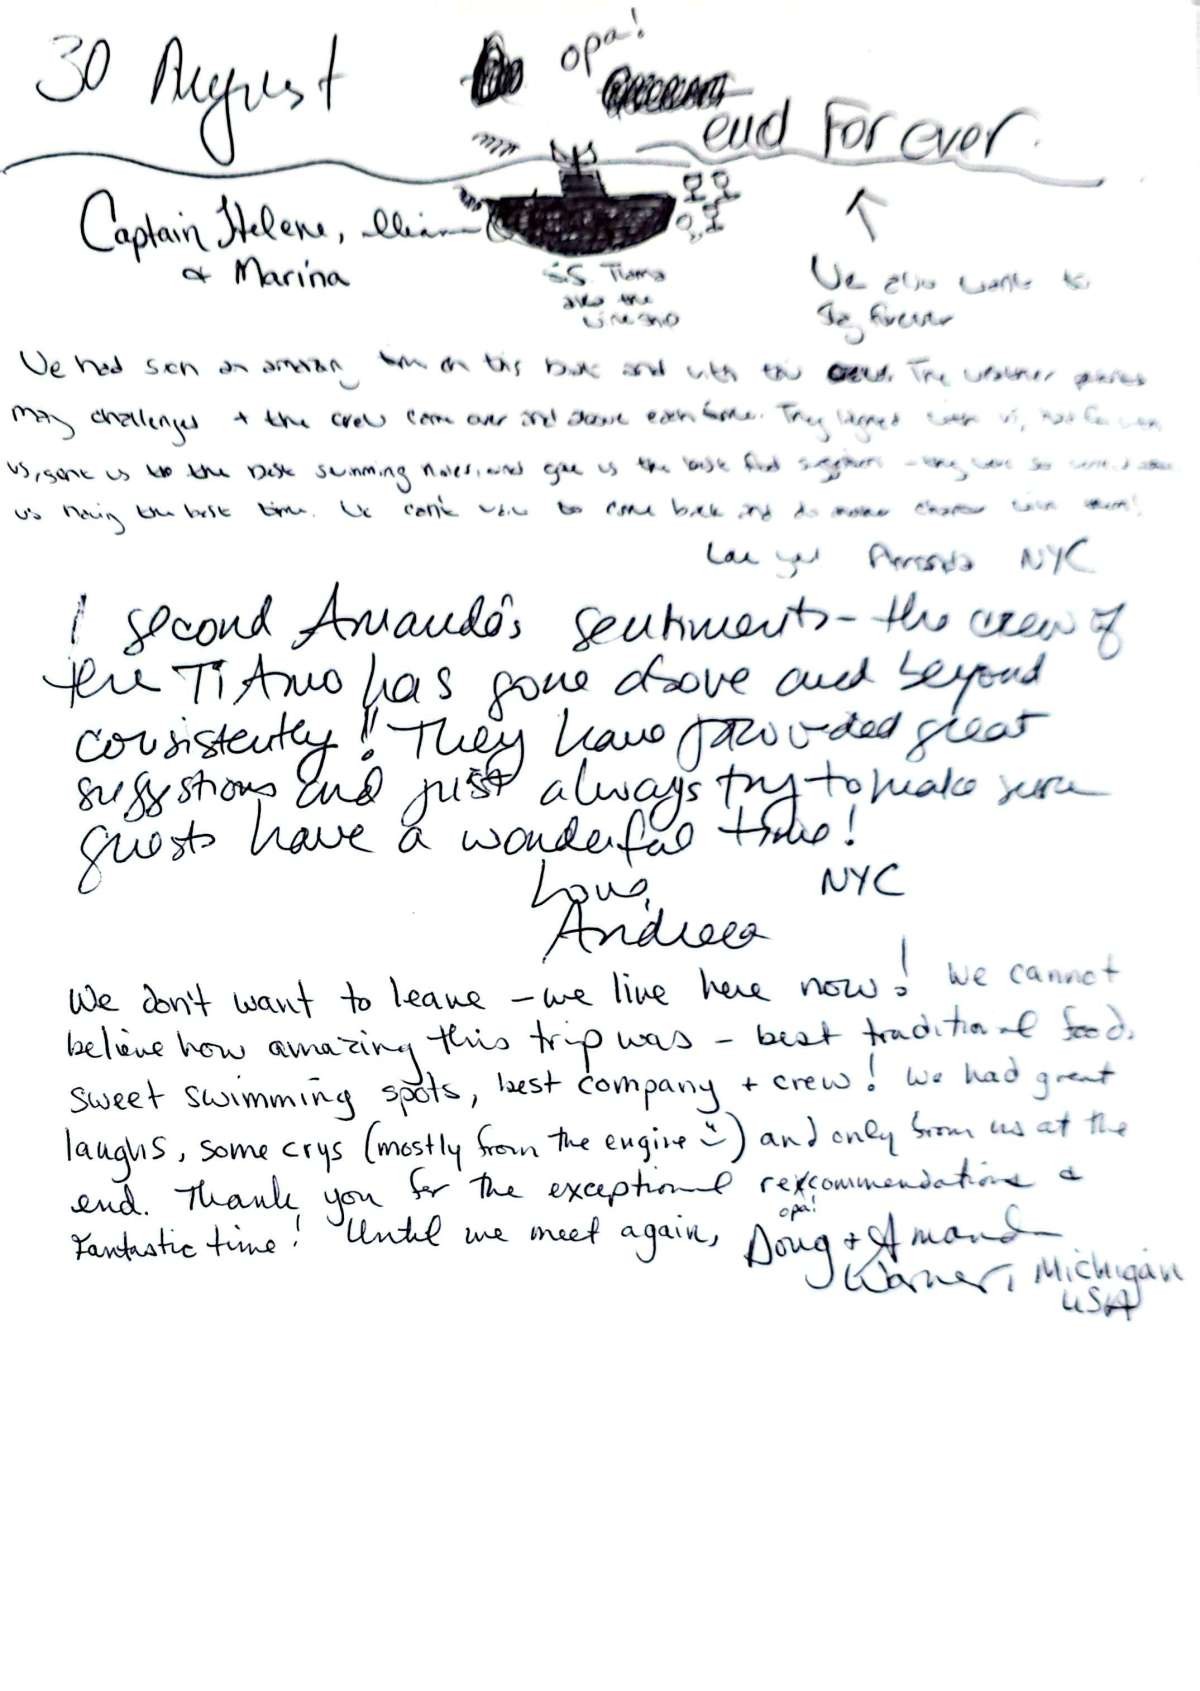 30 August
opa!
end Forever.
Captain Helene,
& Marina
S.S. Tiamo
aka the
We also want to
stay forever
We had such an amazing time on this boat and with this crew. The weather
many challenges + the crew came over and above each time. They
us, us to the best swimming and gave us the best food - they were so
us having the best time. We can't wait to come back and do another charter with them!
Love you Amanda NYC
I second Amanda's sentiments - the crew of
the TiAmo has gone above and beyond
consistently! They have provided great
suggestions and just always try to make sure
guests have a wonderful time!
Love, NYC
Andreea
We don't want to leave - we live here now! We cannot
believe how amazing this trip was - best traditional food,
sweet swimming spots, best company + crew! We had great
laughs, some crys (mostly from the engine) and only from us at the
end. Thank you for the exceptional recommendations &
Fantastic time! Until we meet again, opa! Doug + Amanda
Warner, Michigan
USA